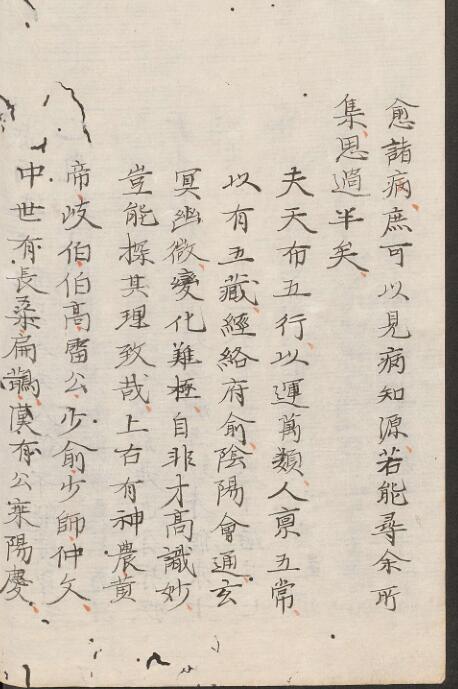 愈諸病庶可以見病知源若能尋余所
集思過半矣
夫天布五行以運萬類人稟五常
以有五藏經絡府俞陰陽會通玄
冥幽微變化難極自非才高識妙
豈能探其理致哉上古有神農黃
帝岐伯伯高雷公少俞少師仲文
中世有長桑扁鵲漢有公乘陽慶